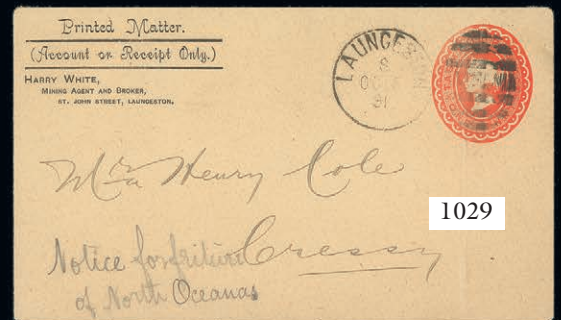 Printed Matter.
(Account or Receipt Only.)
HARRY WHITE,
MINING AGENT AND BROKER,
ST. JOHN STREET, LAUNCESTON,
LAUNCESTON
8
OC
91
Mr Henry Cole
1029
Cressy
Notice forfriture
of North Oceanas